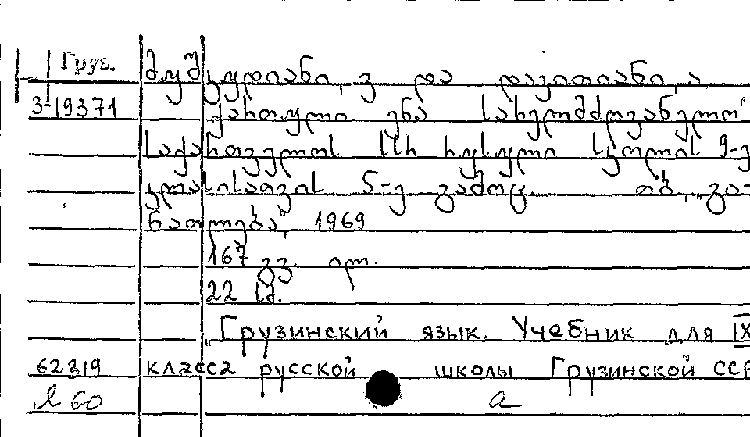 Груз.
მუშკუდიანი, ვ და დავითიანი, ა
3-19371 ქართული ენა სახელმძღვანელო
საქართველოს სსრ რუსული სკოლის 9-ე
კლასისათვის 5-ე გამოც. თბ. „გა-
ნათლება“, 1969
167 გვ. ილ.
22 სმ.
„Грузинский язык. Учебник для IX
62819 класса русской школы Грузинской ССР
л 60 а